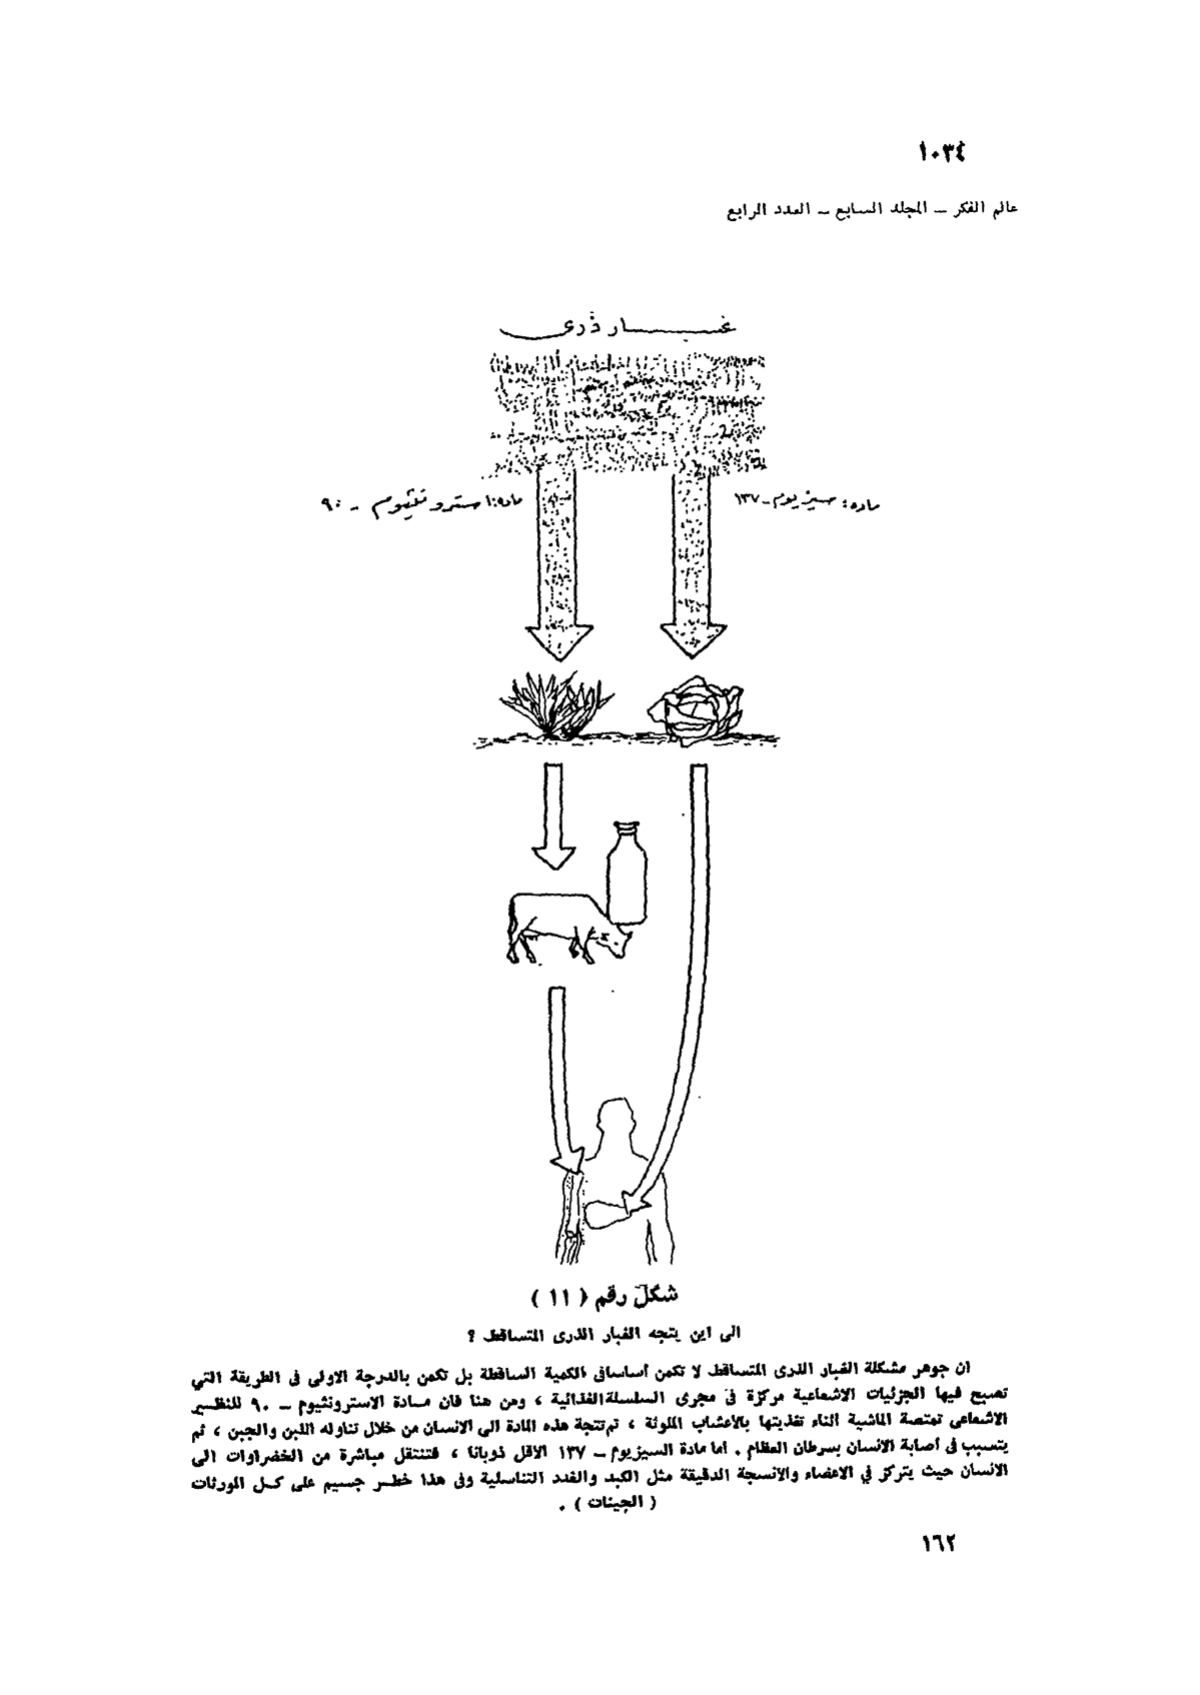 ١٠٣٤
عالم الفكر ـ المجلد السابع ـ العدد الرابع
غبـــــار ذرى
مادة: سيزيوم ـ ١٣٧
مادة: استرونثيوم ـ ٩٠
شكل رقم ( ١١ )
الى اين يتجه الغبار الذرى المتساقط ؟
ان جوهر مشكلة الغبار الذرى المتساقط لا تكمن أساسا فى الكمية الساقطة بل تكمن بالدرجة الاولى فى الطريقة التي
تصبح فيها الجزئيات الاشعاعية مركزة فى مجرى السلسلة الغذائية ، ومن هنا فان مـادة الاسترونثيوم ـ ٩٠ للنظـير
الاشعاعى تمتصة الماشية اثناء تغذيتها بالأعشاب الملوثة ، ثم تتجة هذه المادة الى الانسان من خلال تناوله اللبن والجبن ، ثم
يتسبب فى أصابة الانسان بسرطان العظام . اما مادة السيزيوم ـ ١٣٧ الاقل ذوبانا ، فتنتقل مباشرة من الخضراوات الى
الانسان حيث يتركز في الاعضاء والانسجة الدقيقة مثل الكبد والغدد التناسلية وفى هذا خطـر جسيم على كـل المورثات
( الجينات ) .
١٦٢